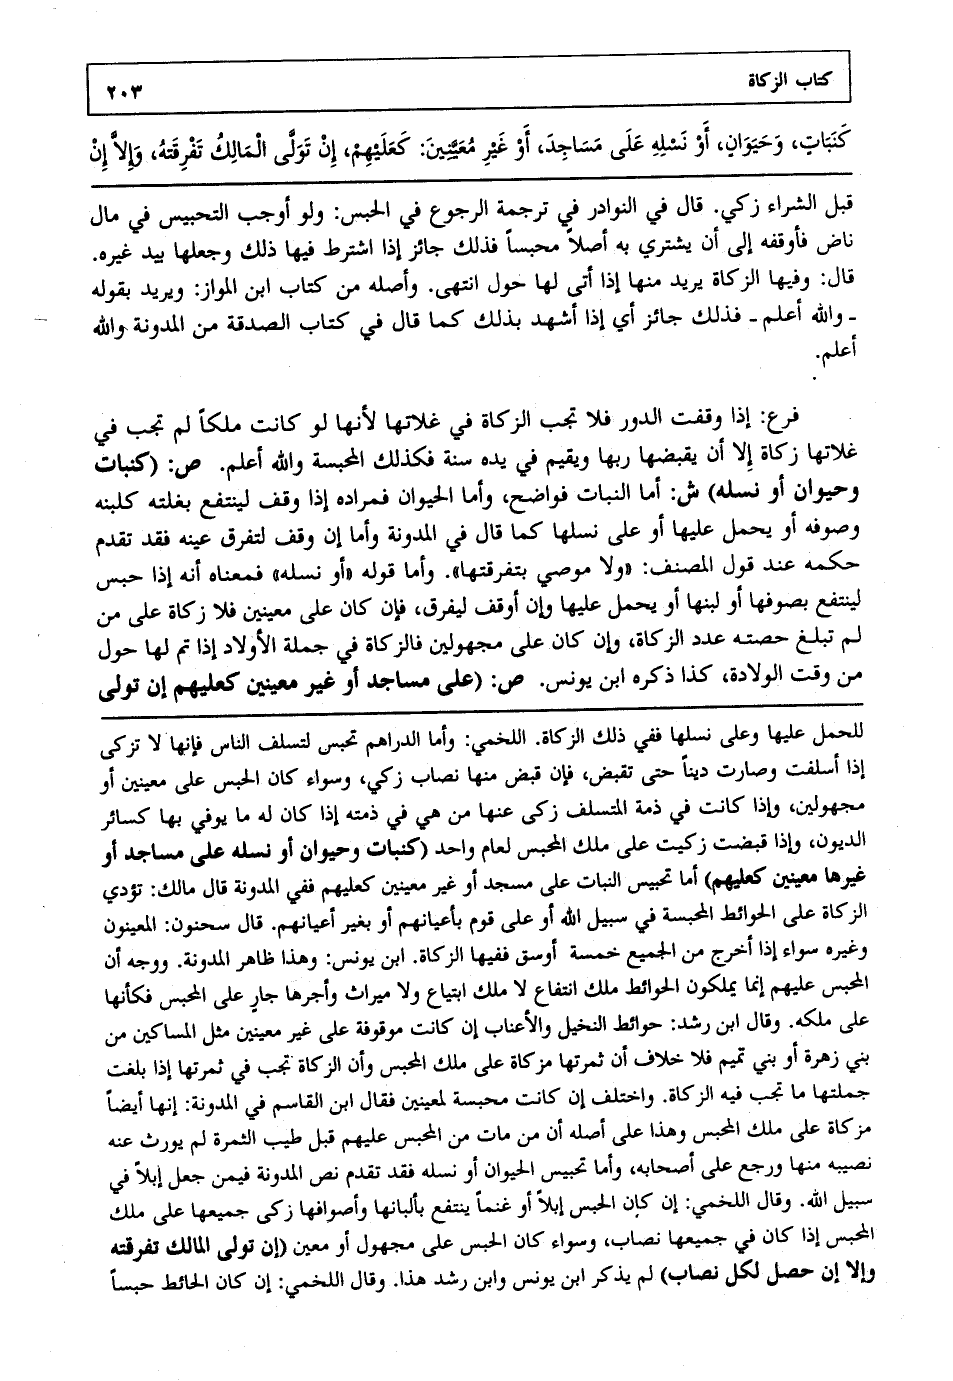 كتاب الزكاة
٢٠٣
كَنَبَاتٍ، وَحَيَوَانٍ، أَوْ نَسْلِهِ عَلَى مَسَاجِدَ، أَوْ غَيْرِ مُعَيَّنِينَ: كَعَلَيْهِمْ، إِنْ تَوَلَّى الْمَالِكُ تَفْرِقَتَهُ، وَإِلاَّ إِنْ
قبل الشراء زكي. قال في النوادر في ترجمة الرجوع في الحبس: ولو أوجب التحبيس في مال
ناض فأوقفه إلى أن يشتري به أصلاً محبساً فذلك جائز إذا اشترط فيها ذلك وجعلها بيد غيره.
قال: وفيها الزكاة يريد منها إذا أتى لها حول انتهى. وأصله من كتاب ابن المواز: ويريد بقوله
ـ والله أعلم ـ فذلك جائز أي إذا أشهد بذلك كما قال في كتاب الصدقة من المدونة والله
أعلم.
فرع: إذا وقفت الدور فلا تجب الزكاة في غلاتها لأنها لو كانت ملكاً لم تجب في
غلاتها زكاة إلا أن يقبضها ربها ويقيم في يده سنة فكذلك المحبسة والله أعلم. ص: (كنبات
وحيوان أو نسله) ش: أما النبات فواضح، وأما الحيوان فمراده إذا وقف لينتفع بغلته كلبنه
وصوفه أو يحمل عليها أو على نسلها كما قال في المدونة وأما إن وقف لتفرق عينه فقد تقدم
حكمه عند قول المصنف: «ولا موصي بتفرقتها». وأما قوله «أو نسله» فمعناه أنه إذا حبس
لينتفع بصوفها أو لبنها أو يحمل عليها وإن أوقف ليفرق، فإن كان على معينين فلا زكاة على من
لم تبلغ حصته عدد الزكاة، وإن كان على مجهولين فالزكاة في جملة الأولاد إذا تم لها حول
من وقت الولادة، كذا ذكره ابن يونس. ص: (على مساجد أو غير معينين كعليهم إن تولى
للحمل عليها وعلى نسلها ففي ذلك الزكاة. اللخمي: وأما الدراهم تحبس لتسلف الناس فإنها لا تزكى
إذا أسلفت وصارت ديناً حتى تقبض، فإن قبض منها نصاب زكي، وسواء كان الحبس على معينين أو
مجهولين، وإذا كانت في ذمة المتسلف زكى عنها من هي في ذمته إذا كان له ما يوفي بها كسائر
الديون، وإذا قبضت زكيت على ملك المحبس لعام واحد (كنبات وحيوان أو نسله على مساجد أو
غيرها معينين كعليهم) أما تحبيس النبات على مسجد أو غير معينين كعليهم ففي المدونة قال مالك: تؤدي
الزكاة على الحوائط المحبسة في سبيل الله أو على قوم بأعيانهم أو بغير أعيانهم. قال سحنون: المعينون
وغيره سواء إذا أخرج من الجميع خمسة أوسق ففيها الزكاة. ابن يونس: وهذا ظاهر المدونة. ووجه أن
المحبس عليهم إنما يملكون الحوائط ملك انتفاع لا ملك ابتياع ولا ميراث وأجرها جارٍ على المحبس فكأنها
على ملكه. وقال ابن رشد: حوائط النخيل والأعناب إن كانت موقوفة على غير معينين مثل المساكين من
بني زهرة أو بني تميم فلا خلاف أن ثمرتها مزكاة على ملك المحبس وأن الزكاة تجب في ثمرتها إذا بلغت
جملتها ما تجب فيه الزكاة. واختلف إن كانت محبسة لمعينين فقال ابن القاسم في المدونة: إنها أيضاً
مزكاة على ملك المحبس وهذا على أصله أن من مات من المحبس عليهم قبل طيب الثمرة لم يورث عنه
نصيبه منها ورجع على أصحابه، وأما تحبيس الحيوان أو نسله فقد تقدم نص المدونة فيمن جعل إبلاً في
سبيل الله. وقال اللخمي: إن كان الحبس إبلاً أو غنماً ينتفع بألبانها وأصوافها زكى جميعها على ملك
المحبس إذا كان في جميعها نصاب، وسواء كان الحبس على مجهول أو معين (إن تولى المالك تفرقته
وإلا إن حصل لكل نصاب) لم يذكر ابن يونس وابن رشد هذا. وقال اللخمي: إن كان الحائط حبساً